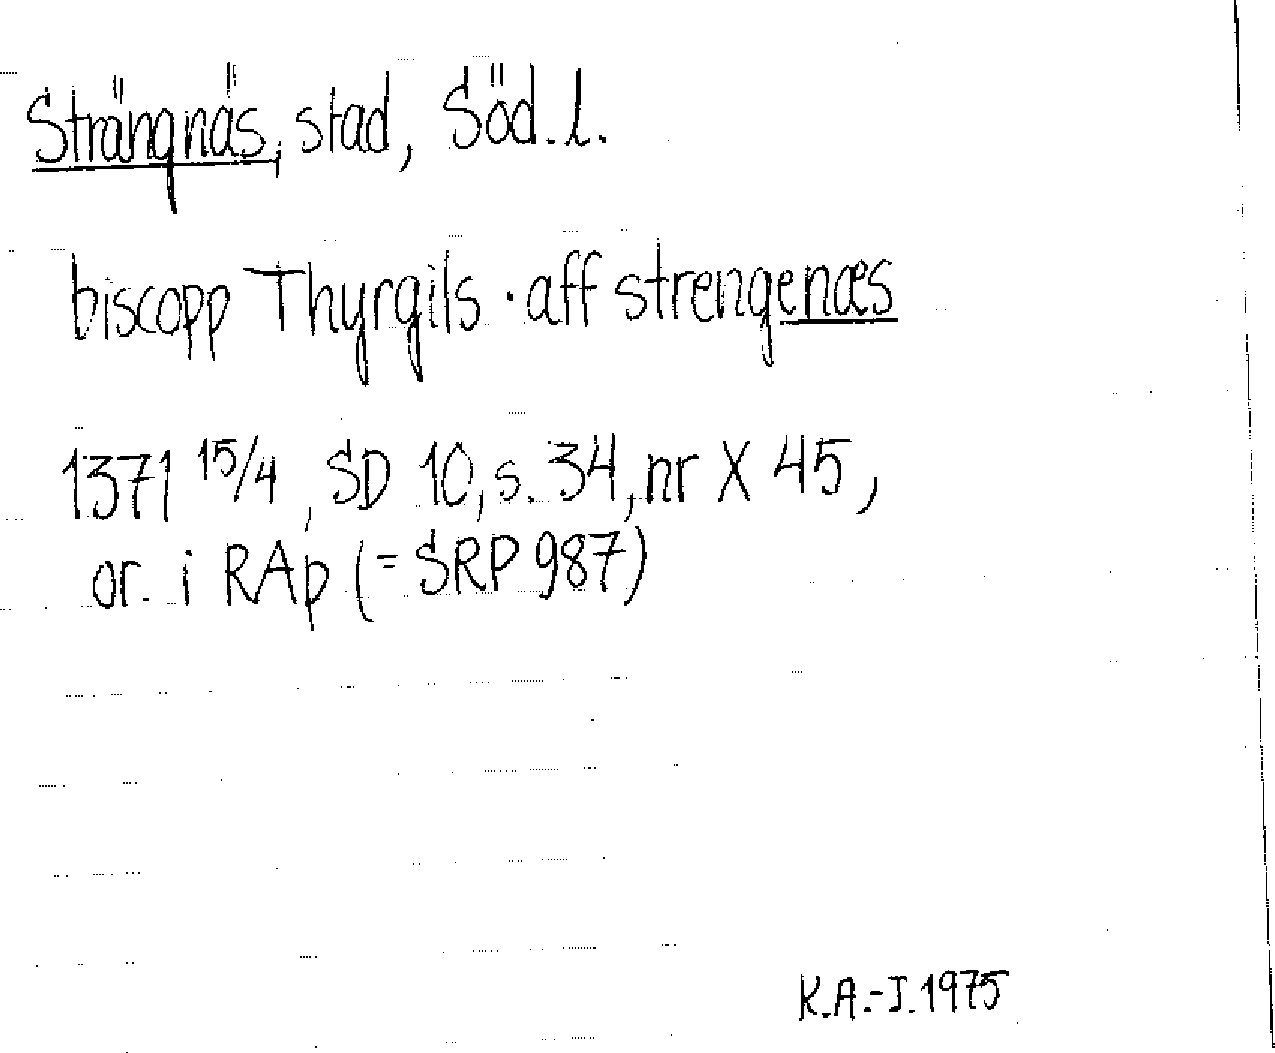 Strängnäs, stad, Söd. l.
biscopp Thyrgils · aff strengenæs
1371 15/4, SD 10, s. 34, nr X 45,
or. i RAp (= SRP 987)
K.A.-J. 1975